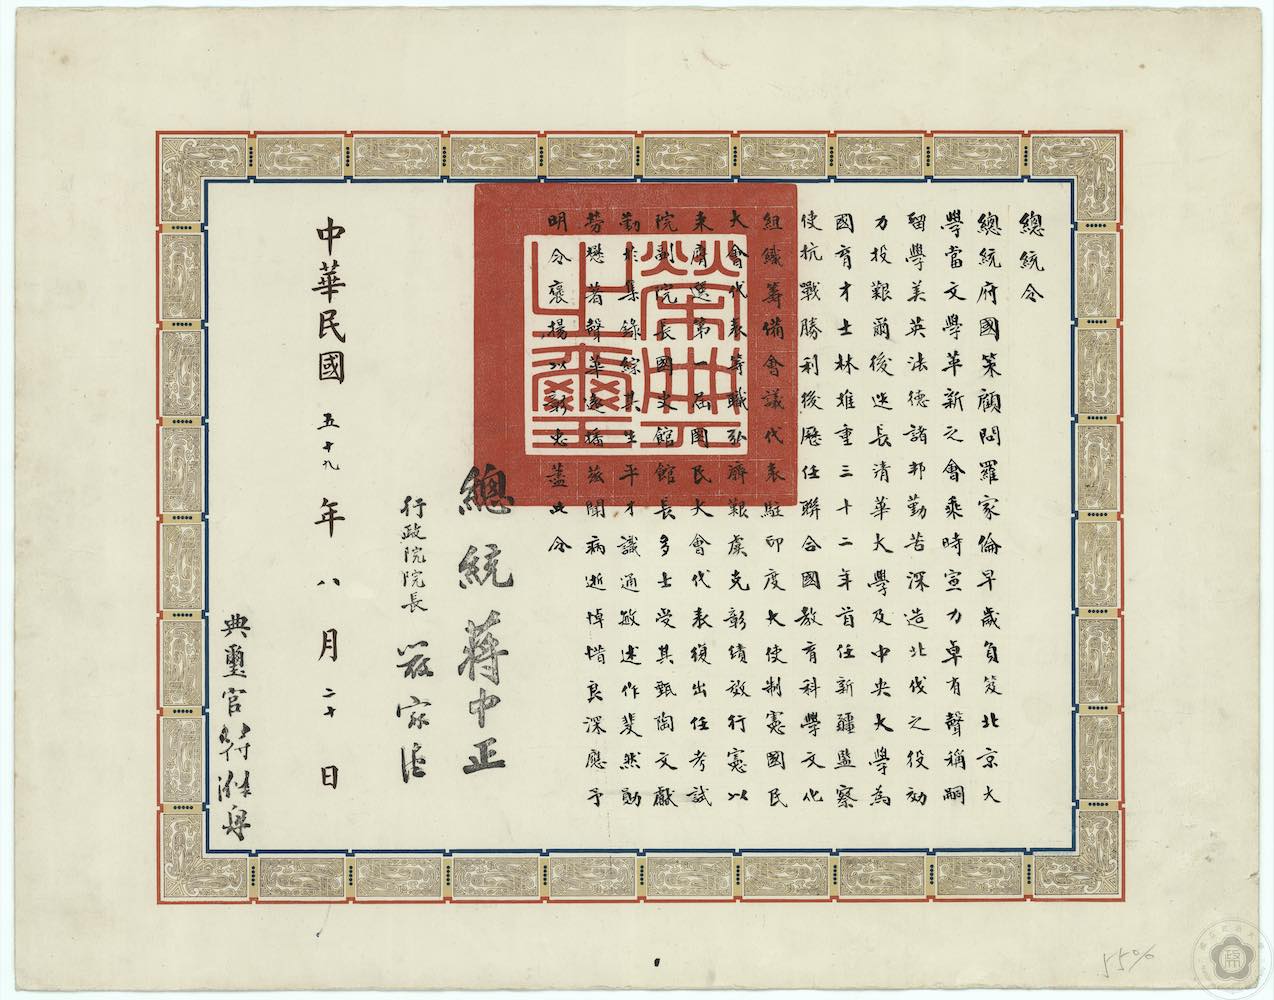 總統令
總統府國策顧問羅家倫早歲負笈北京大
學當文學革新之會乘時宣力卓有聲稱嗣
留學美英法德諸邦勤苦深造北伐之役効
力投艱爾後迭長清華大學及中央大學為
國育才士林推重三十二年首任新疆監察
使抗戰勝利後歷任聯合國教育科學文化
組織籌備會議代表駐印度大使制憲國民
大會代表籌職弘濟艱虞克彰績效行憲以
來膺選第一屆國民大會代表復出任考試
院副院長國史館館長多士受其甄陶文獻
勤於集錄綜其生平才識通敏述作斐然勛
勞懋著聲華遠播茲聞病逝悼惜良深應予
明令褒揚以彰忠藎此令
榮典之璽
總統蔣中正
行政院院長 嚴家淦
中華民國五十九年八月二十日
典璽官符滌泉
55%